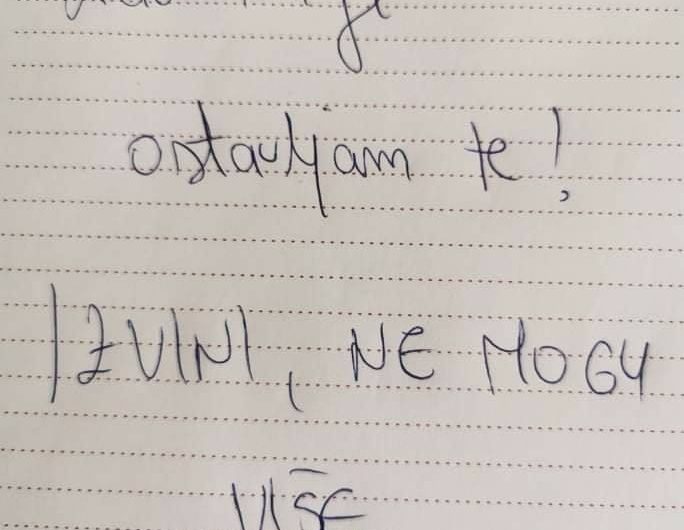 ostavljam te!
IZVINI, NE MOGU
VIŠE